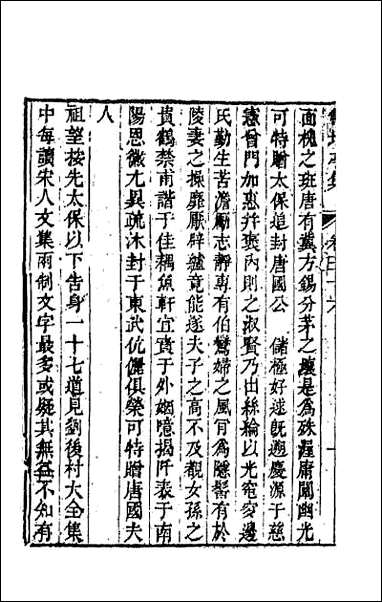 面槐之班唐有冀方錫分茅之壤是為殊渥庸闡幽光
可特贈太保追封唐國公　儲極好逑旣遡慶源于慈
懿曾門加惠幷褒內則之淑賢乃出絲綸以光窀穸邊
氏勤生苦澹勵志靜專有伯鸞婦之風肎為隱髻有於
陵妻之操靡厭辟纑竟能遂夫子之高不及覩女孫之
貴鶴禁甫諧于佳耦魚軒宜賁于外姻噫揭阡表于南
陽恩徽尤異疏沐封于東武伉儷俱榮可特贈唐國夫
人
祖望按先太保以下告身一十七道見劉後村大全集
中每讀宋人文集兩制文字最多或疑其無益不知有